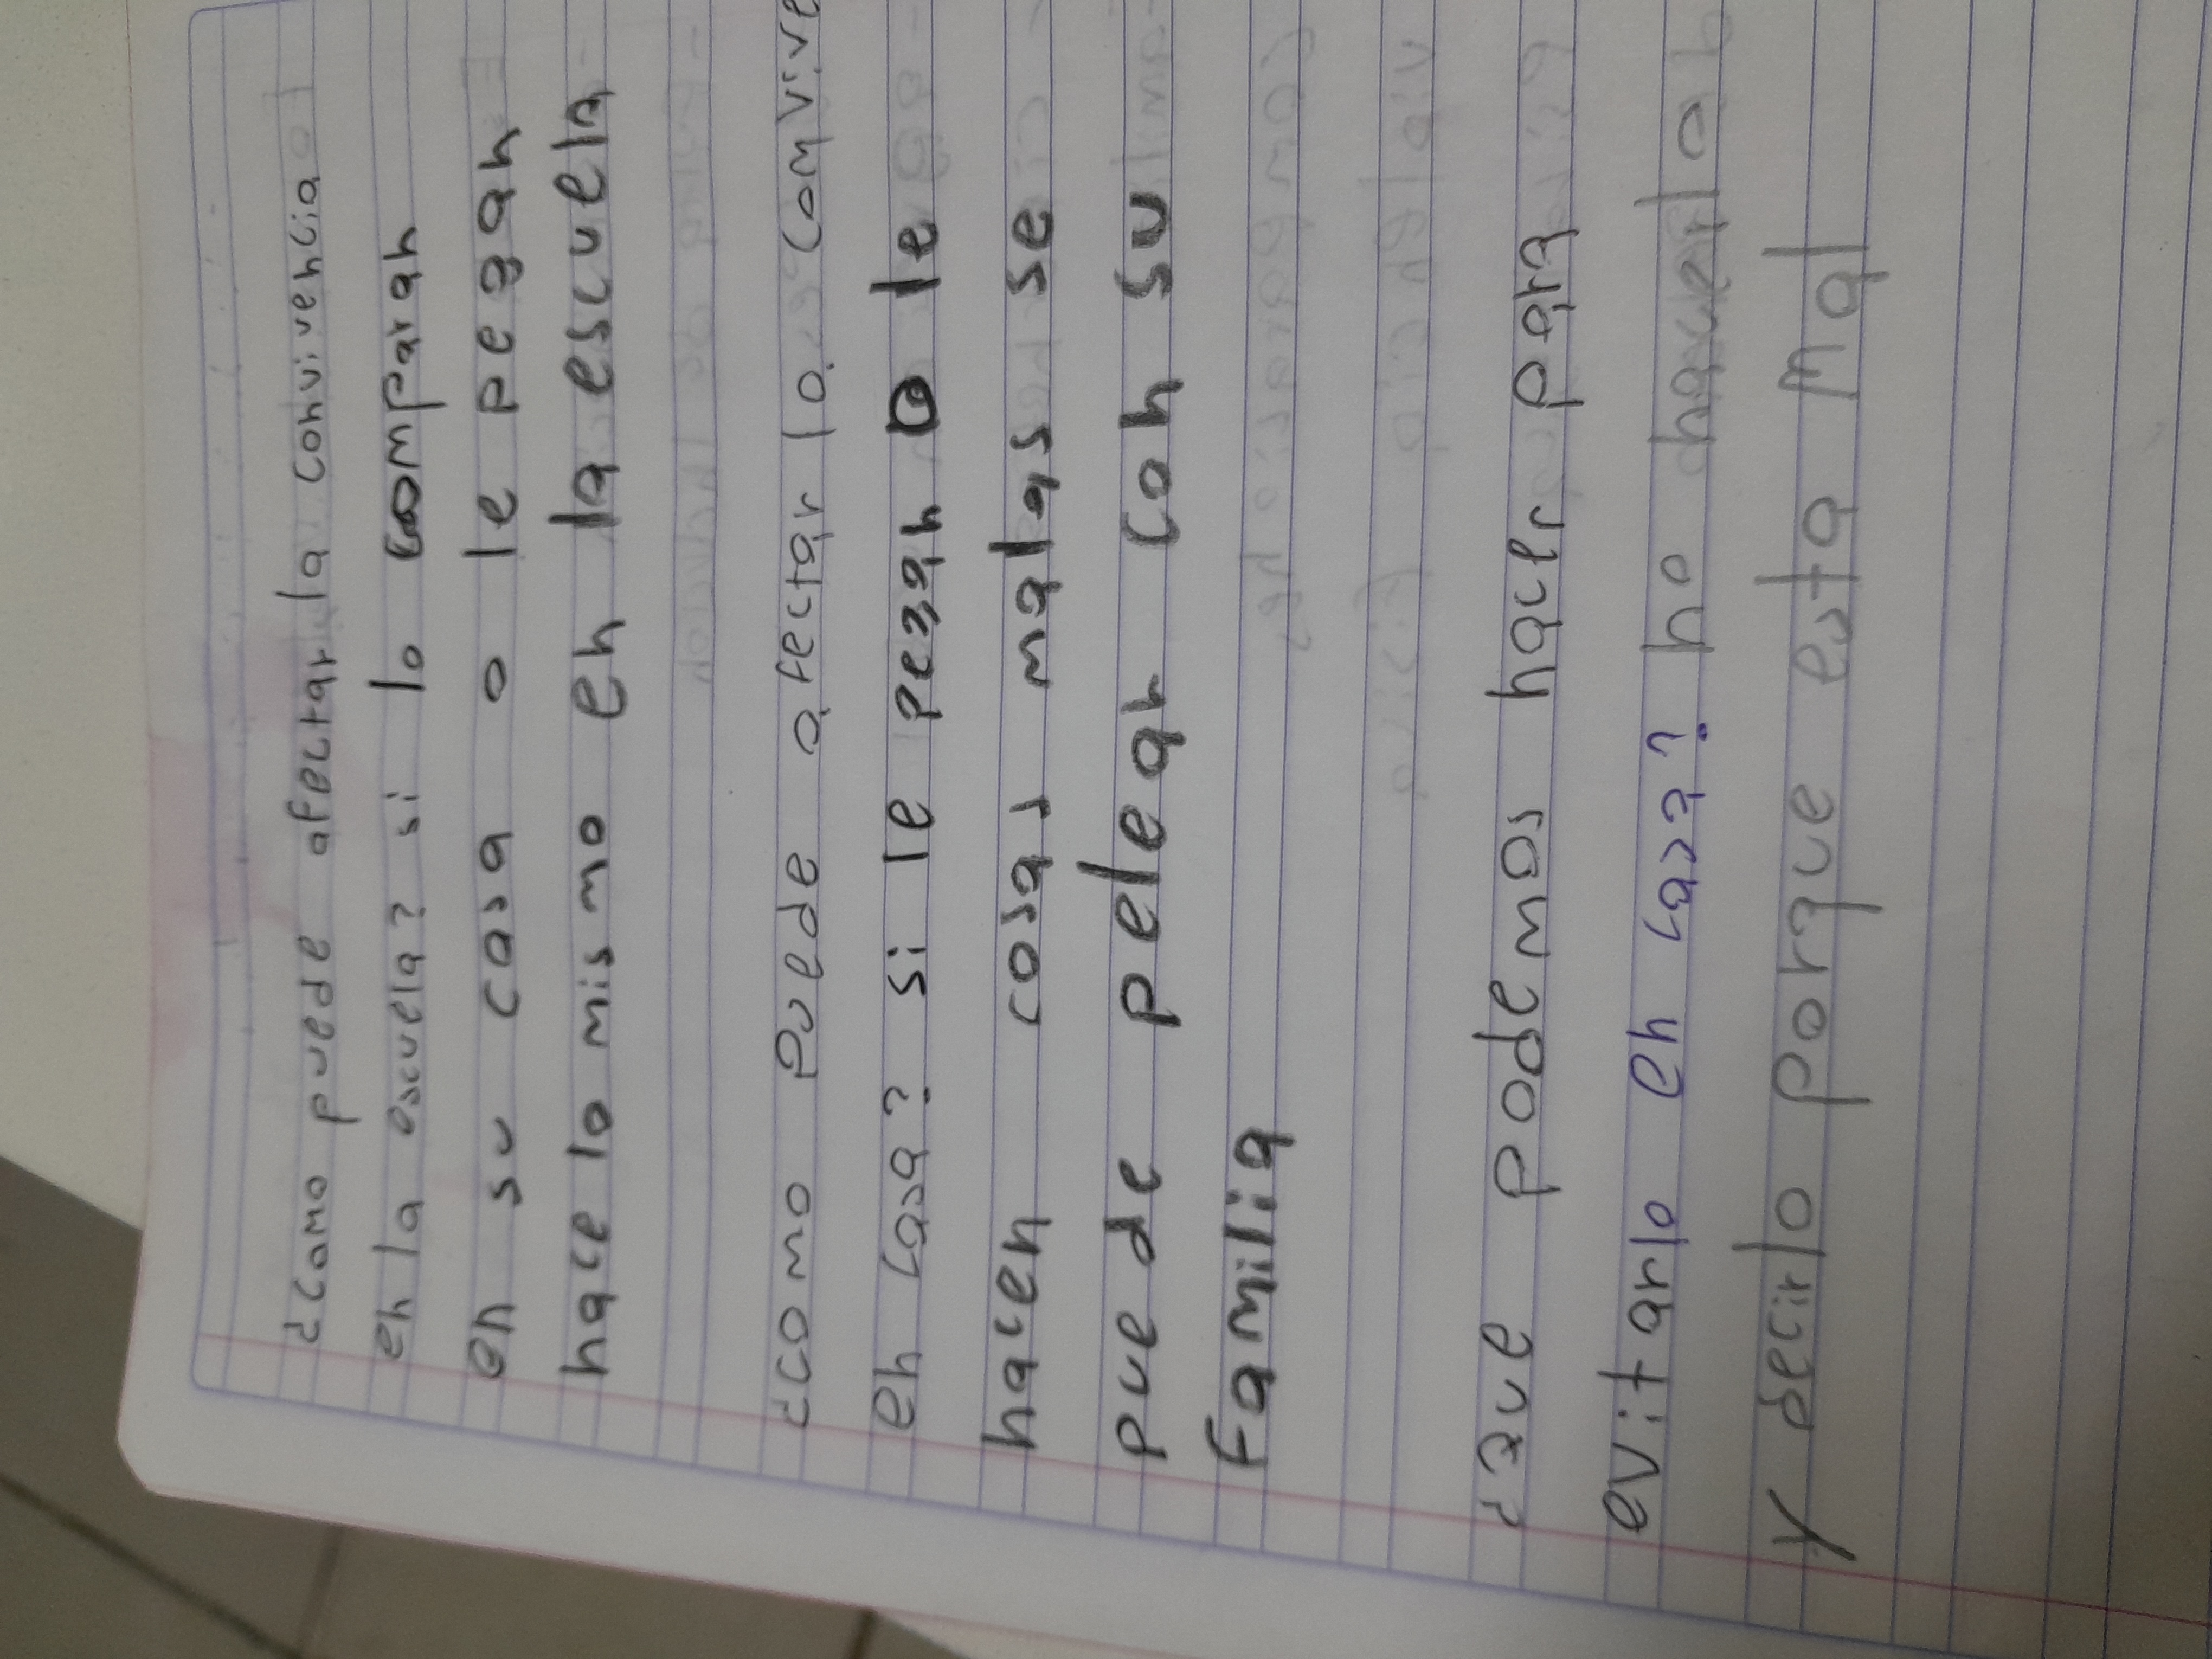 ¿como puede afectar la convivencia
en la escuela? si lo comparan
en su casa o le pegan
hace lo mismo en la escuela
¿como puede afectar la convive
en casa? si le pegan o le
hacen cosas malas se
puede pelear con su
Familia
¿Que podemos hacer para
evitarlo en casa? no hacerlo
y decirlo porque esta mal